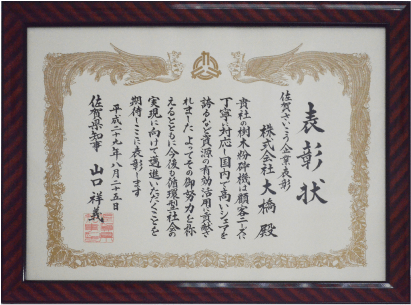 表彰状
佐賀さいこう企業表彰
株式会社大橋殿
貴社の樹木粉砕機は顧客ニーズに
丁寧に対応し国内で高いシェアを
誇るなど資源の有効活用に貢献さ
れました よってその御努力を称
えるとともに今後も循環型社会の
実現に向けて邁進いただくことを
期待しここに表彰します
平成二十九年八月二十五日
佐賀県知事 山口祥義